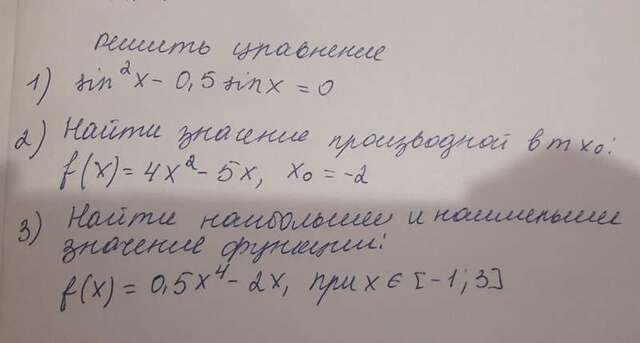 Решить уравнение
1) sin²x - 0,5 sinx = 0
2) Найти значение производной в т x₀:
f(x) = 4x² - 5x, x₀ = -2
3) Найти наибольшее и наименьшее
значение функции:
f(x) = 0,5x⁴ - 2x, при x ∈ [-1; 3]